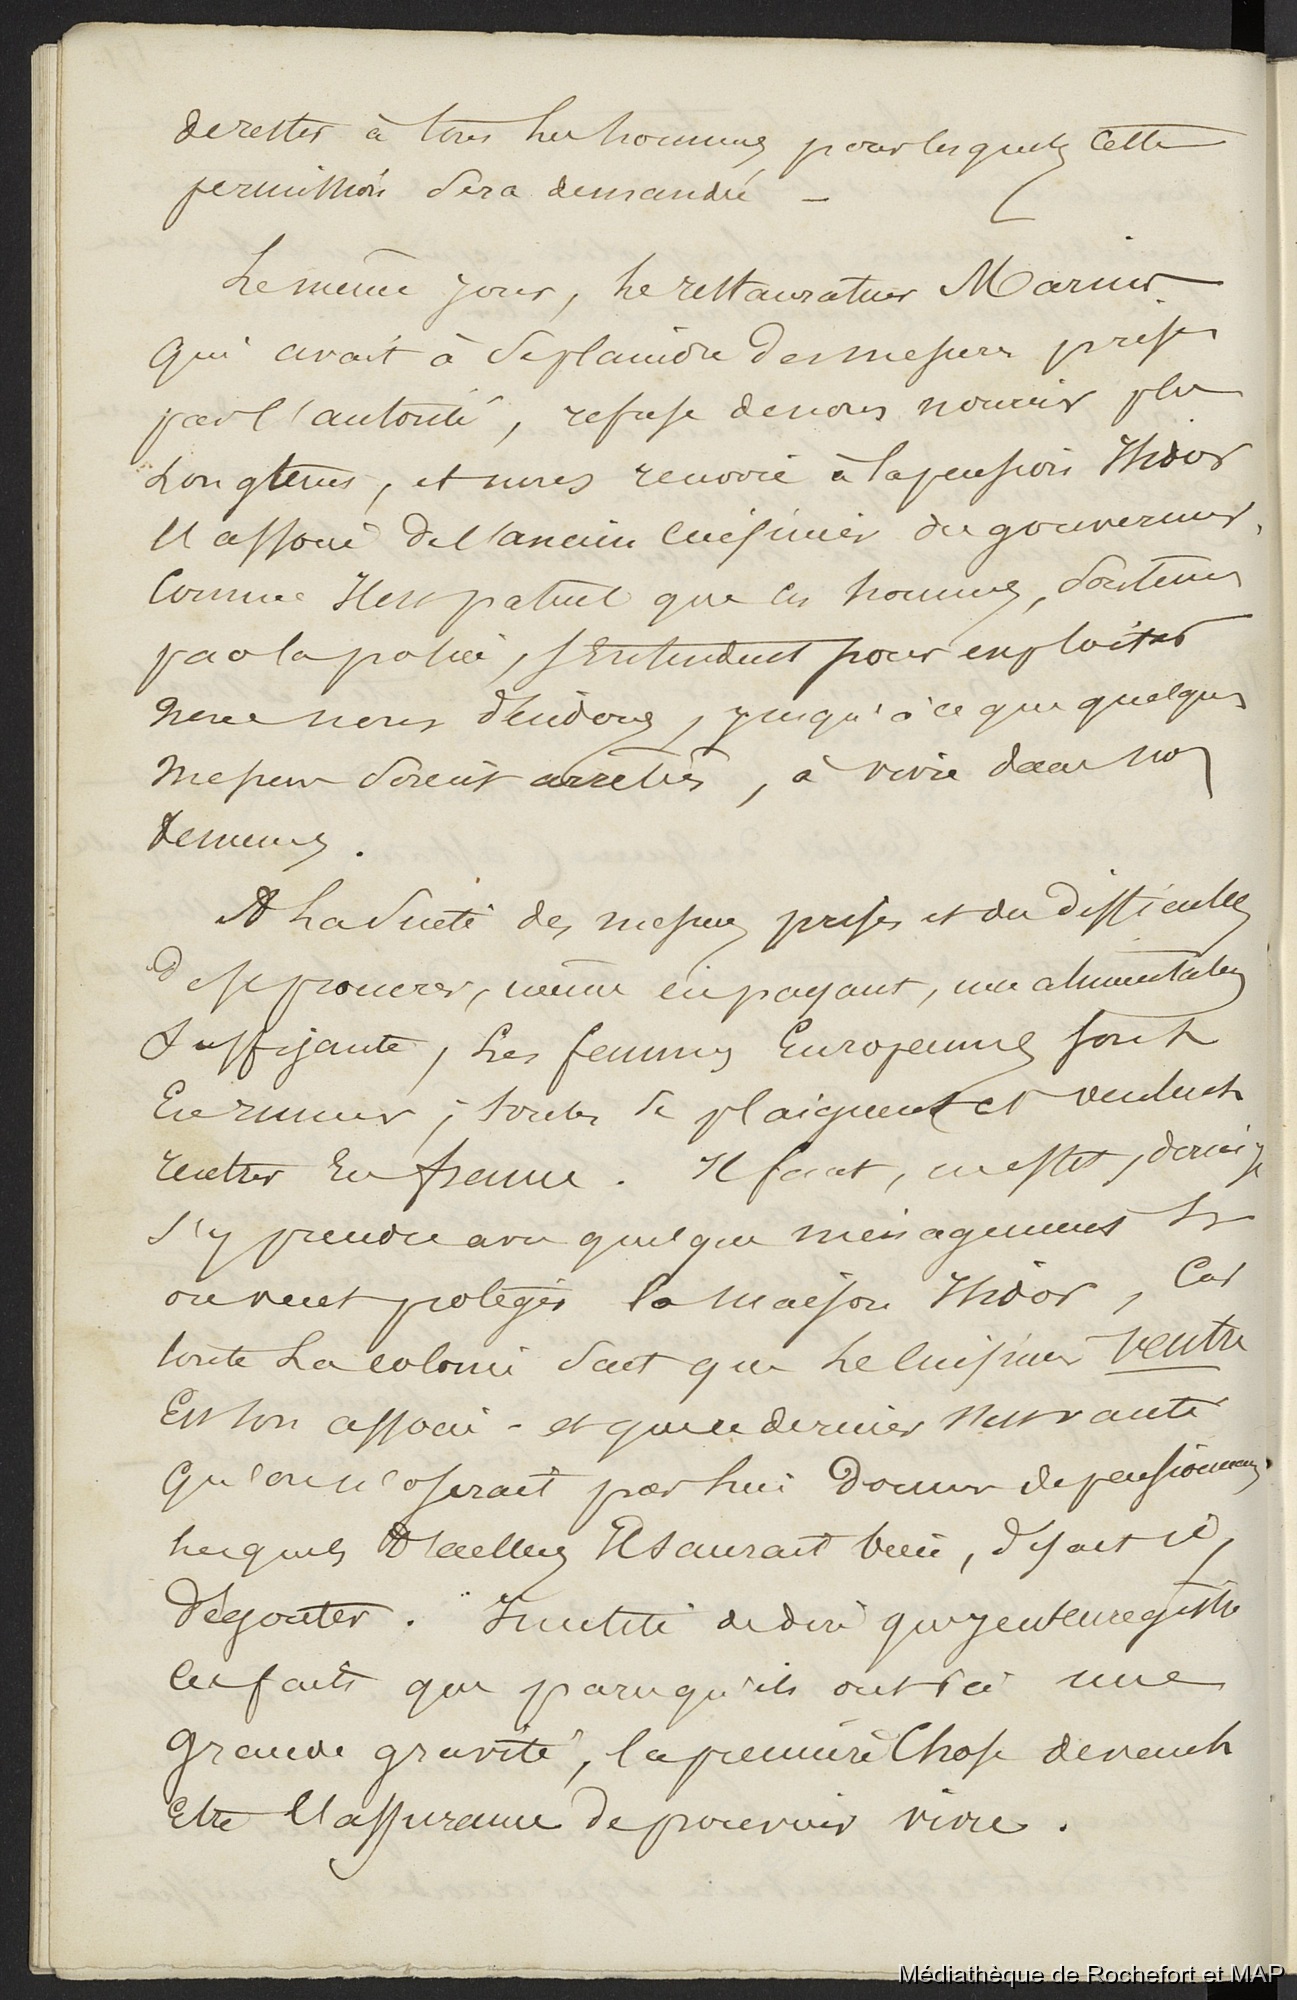 de rester à tous les hommes pour lesquels cette
permission sera demandée –
Le même jour, le restaurateur Marius
qui avait à se plaindre des mesures prises
par l'autorité, refuse de nous nourrir plus
longtems, et nous renvoie à la pension Thidor
l'associé de l'ancien cuisinier du gouverneur.
Comme il est patent que ces hommes, soutenus
par la police, s'entendent pour exploiter
nous nous décidons, jusqu'à ce que quelques
mesures soient arrêtées, à vivre dans nos
demeures.
A la suite des mesures prises et des difficultés
de se procurer, même en payant, une alimentation
suffisante, les femmes Européennes sont
en rumeur; toutes se plaignent et veulent
rentrer en france. Il faut, en effet,
s'y prendre avec quelques ménagements si
on veut protéger la maison Thidor, car
toute la colonie sait que le cuisinier Ventre
est son associé – et que ce dernier s'est vanté
qu'on n'oserait pas lui donner de pensionnaires
lesquels d'ailleurs il saurait bien, disait-il,
dégouter. Inutile de dire que j'enregistre
ces faits que parcequ'ils ont ici une
grande gravité, la première chose devant
être l'assurance de pouvoir vivre.
Médiathèque de Rochefort et MAP